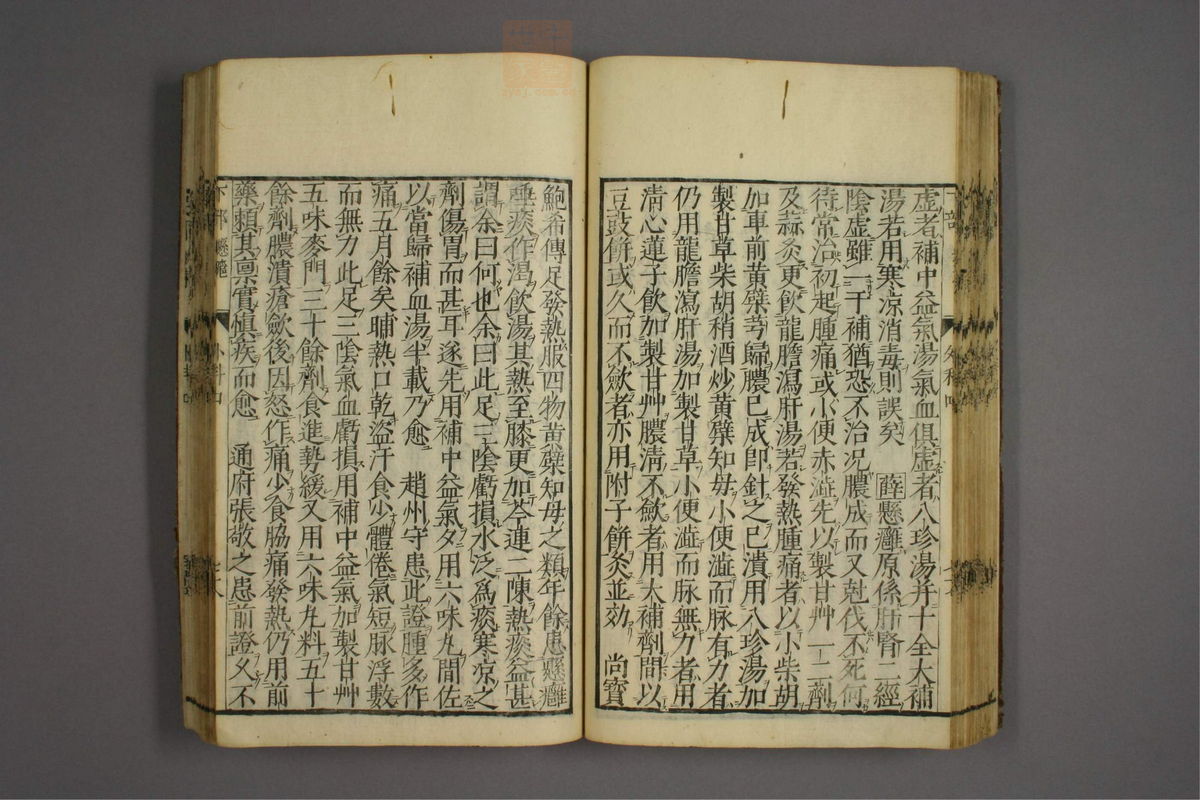 虛者補中益氣湯氣血俱虛者八珍湯并十全大補
湯若用寒涼消毒則誤矣 薛懸癰原係肝腎二經
陰虛雖一于補猶恐不治況膿成而又尅伐不死何
待常治初起腫痛或小便赤澁先以製甘艸一二劑
及蒜灸更飲龍膽瀉肝湯若發熱腫痛者以小柴胡
加車前黃蘗芎歸膿已成卽針之已潰用八珍湯加
製甘草柴胡稍酒炒黃蘗知母小便澁而脉有力者
仍用龍膽瀉肝湯加製甘草小便澁而脉無力者用
清心蓮子飲加製甘艸膿清不歛者用大補劑間以
豆豉餅或久而不歛者亦用附子餅灸並効 尚寶
鮑希傳足發熱服四物黃蘗知母之類年餘患懸癰
唾痰作渴飲湯其熱至膝更加芩連二陳熱痰益甚
謂余曰何也余曰此足三陰虧損水泛爲痰寒凉之
劑傷胃而甚耳遂先用補中益氣夕用六味丸間佐
以當歸補血湯半載乃愈 趙州守患此證腫多作
痛五月餘矣晡熱口乾盜汗食少體倦氣短脉浮數
而無力此足三陰氣血虧損用補中益氣加製甘艸
五味麥門三十餘劑食進勢緩又用六味丸料五十
餘劑膿潰瘡歛後因怒作痛少食脇痛發熱仍用前
藥賴其稟實愼疾而愈 通府張敬之患前證久不
下部 懸癰